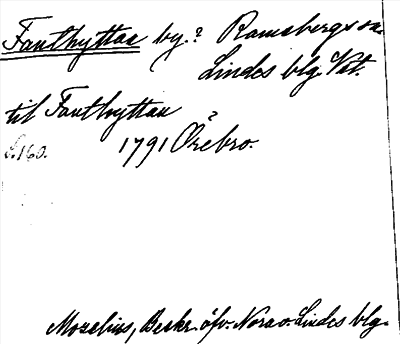 Fanthyttan by? Ramsbergs sn.
Lindes blg. Vstl.
til Fanthyttan
S. 160. 1791 Örebro.
Mozelius, Beskr. öfv. Nora o. Lindes blg.